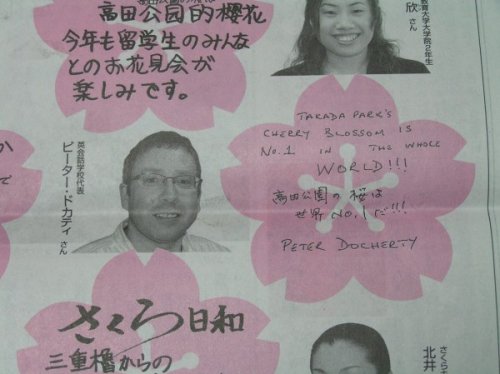 高田公园的櫻花
今年も留学生のみんな
とのお花見会が
楽しみです。
教育大学大学院2年生
欣さん
TAKADA PARK'S
CHERRY BLOSSOM IS
NO.1 IN THE WHOLE
WORLD!!!
高田公園の桜は
世界NO.1だ!!!
PETER DOCHERTY
英会話学校代表
ピーター・ドカティさん
さくら日和
三重櫓からの
北井